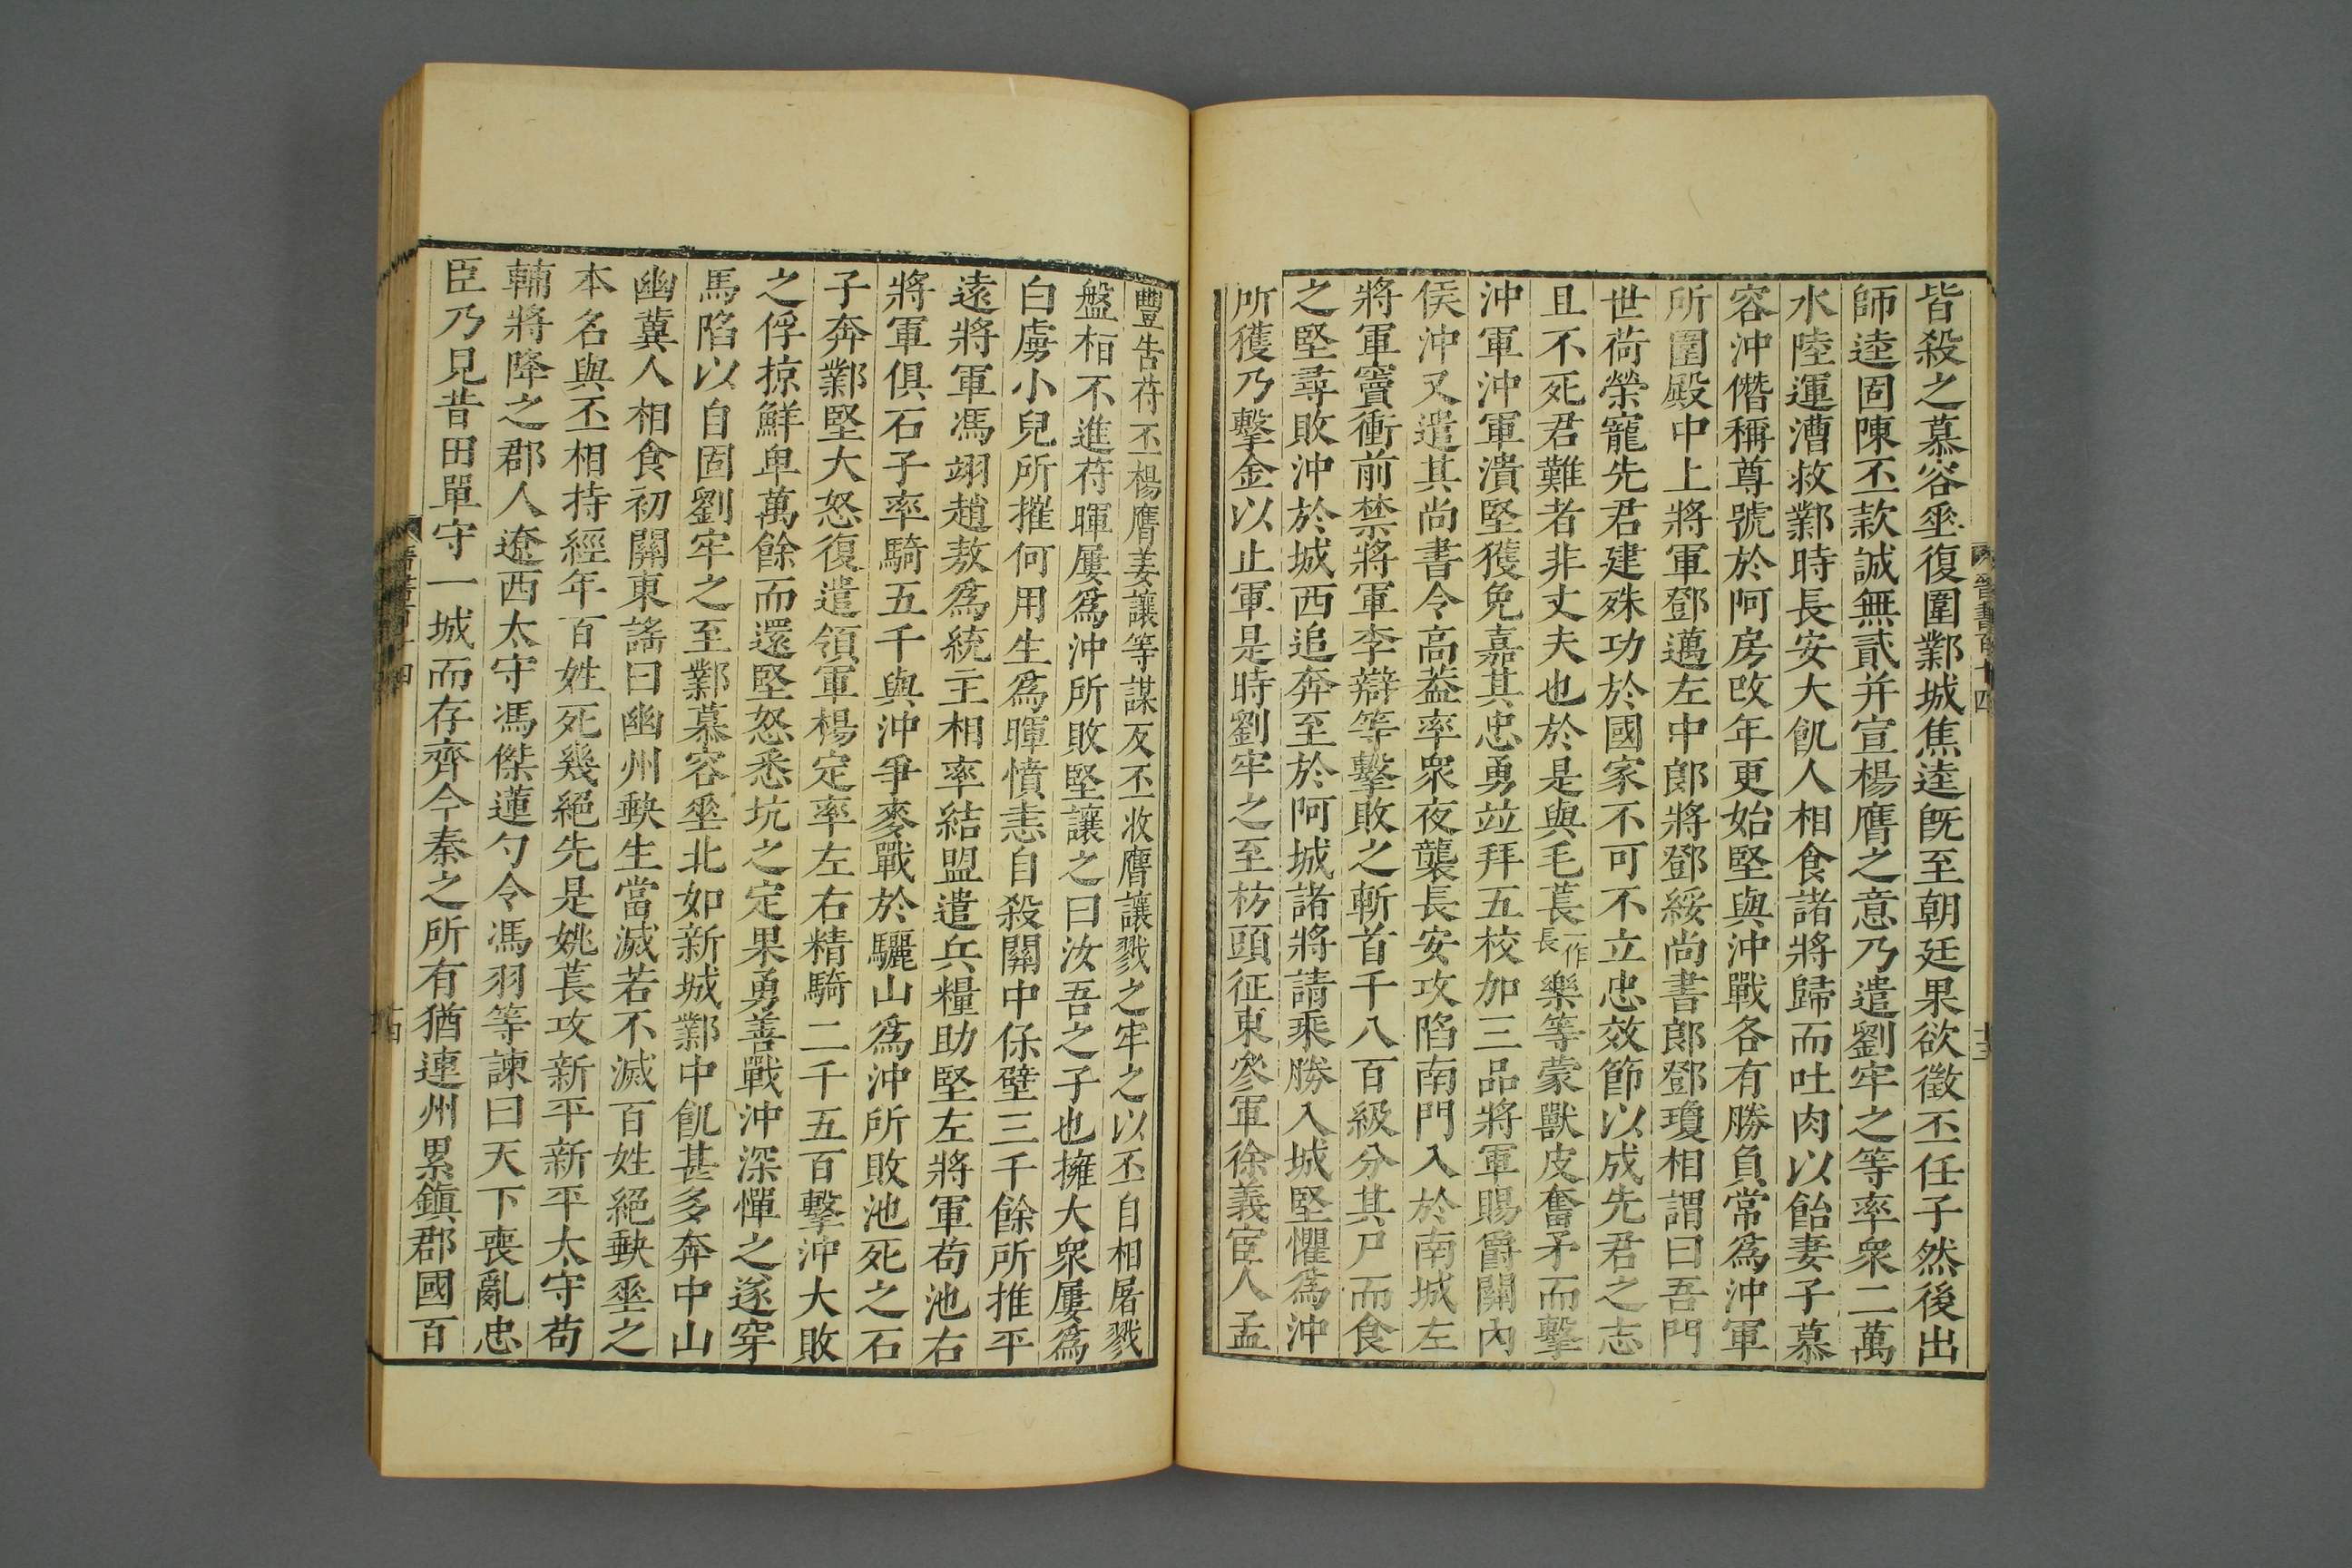 皆殺之慕容垂復圍鄴城焦逵旣至朝廷果欲徵丕任子然後出
師逵固陳丕款誠無貳并宣楊膺之意乃遣劉牢之等率衆二萬
水陸運漕救鄴時長安大飢人相食諸將歸而吐肉以飴妻子慕
容沖僭稱尊號於阿房改年更始堅與沖戰各有勝負常爲沖軍
所圍殿中上將軍鄧邁左中郎將鄧綏尚書郎鄧瓊相謂曰吾門
世荷榮寵先君建殊功於國家不可不立忠效節以成先君之志
且不死君難者非丈夫也於是與毛萇一作長樂等蒙獸皮奮矛而擊
沖軍沖軍潰堅獲免嘉其忠勇竝拜五校加三品將軍賜爵關內
侯沖又遣其尚書令高葢率衆夜襲長安攻陷南門入於南城左
將軍竇衝前禁將軍李辯等擊敗之斬首千八百級分其尸而食
之堅尋敗沖於城西追奔至於阿城諸將請乘勝入城堅懼爲沖
所獲乃擊金以止軍是時劉牢之至枋頭征東參軍徐義宦人孟
晉書百十四
十三
豐告苻丕楊膺姜讓等謀反丕收膺讓戮之牢之以丕自相屠戮
盤桓不進苻暉屢爲沖所敗堅讓之曰汝吾之子也擁大衆屢爲
白虜小兒所摧何用生爲暉憤恚自殺關中保壁三千餘所推平
遠將軍馮翊趙敖爲統主相率結盟遣兵糧助堅左將軍苟池右
將軍俱石子率騎五千與沖爭麥戰於驪山爲沖所敗池死之石
子奔鄴堅大怒復遣領軍楊定率左右精騎二千五百擊沖大敗
之俘掠鮮卑萬餘而還堅怒悉坑之定果勇善戰沖深憚之遂穿
馬陷以自固劉牢之至鄴慕容垂北如新城鄴中飢甚多奔中山
幽冀人相食初關東謠曰幽州𡙇生當滅若不滅百姓絕𡙇垂之
本名與丕相持經年百姓死幾絕先是姚萇攻新平新平太守苟
輔將降之郡人遼西太守馮傑蓮勺令馮羽等諫曰天下喪亂忠
臣乃見昔田單守一城而存齊今秦之所有猶連州累鎮郡國百
晉書百十四
十四